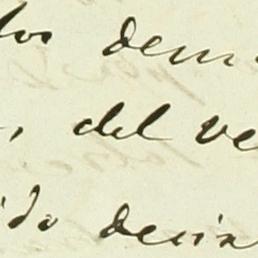 los dem
, del ve
ido decir